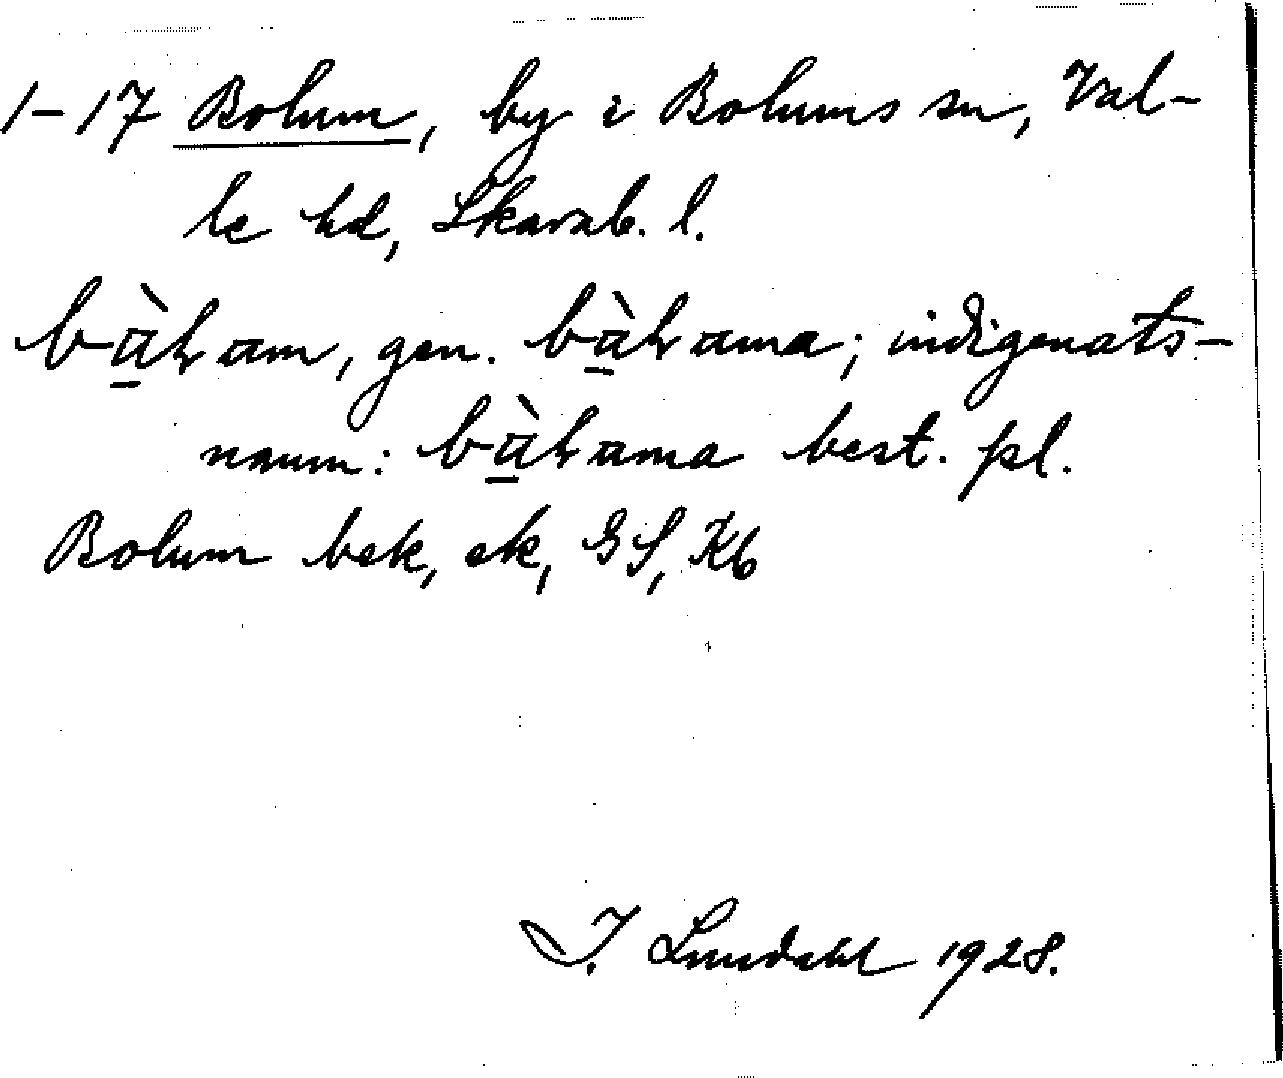 1-17 Bolum, by i Bolums sn, Val-
le hd, Skarab. l.
bàɫam, gen. bàɫama; indigenats-
namn: bàɫama best. pl.
Bolum bek, ek, GS, Kb
I. Lundahl 1928.